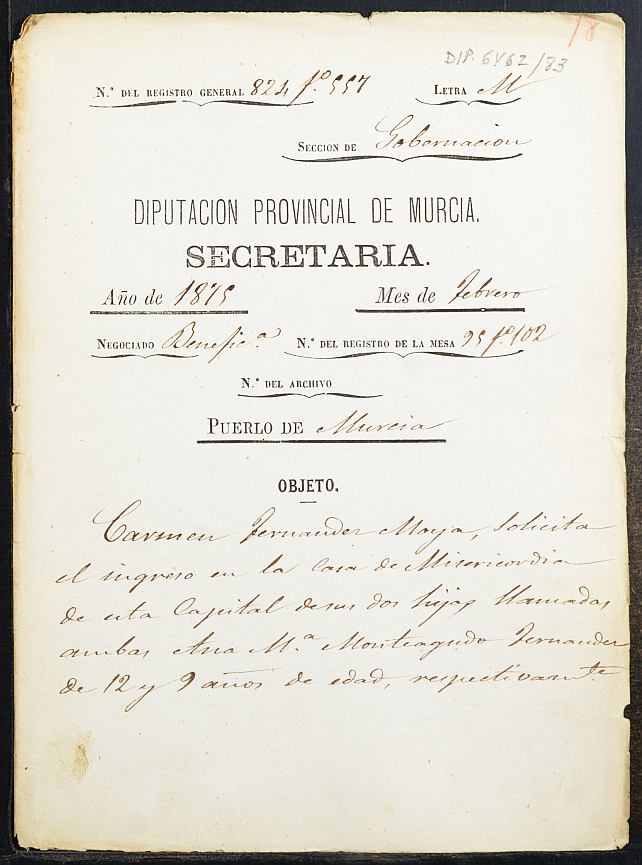 18
DIP. 6462/83
N.° DEL REGISTRO GENERAL 824 f.° 557 LETRA M
SECCION DE Gobernacion
DIPUTACION PROVINCIAL DE MURCIA.
SECRETARIA.
Año de 1875 Mes de Febrero
NEGOCIADO Benefic.ª N.° DEL REGISTRO DE LA MESA 95 f.° 102
N.° DEL ARCHIVO
PUERLO DE Murcia
OBJETO.
Carmen Fernandez Moya, solicita
el ingreso en la Casa de Misericordia
de esta Capital de sus dos hijas llamadas
ambas Ana M.ª Monteagudo Fernandez
de 12 y 9 años de edad, respectivamte